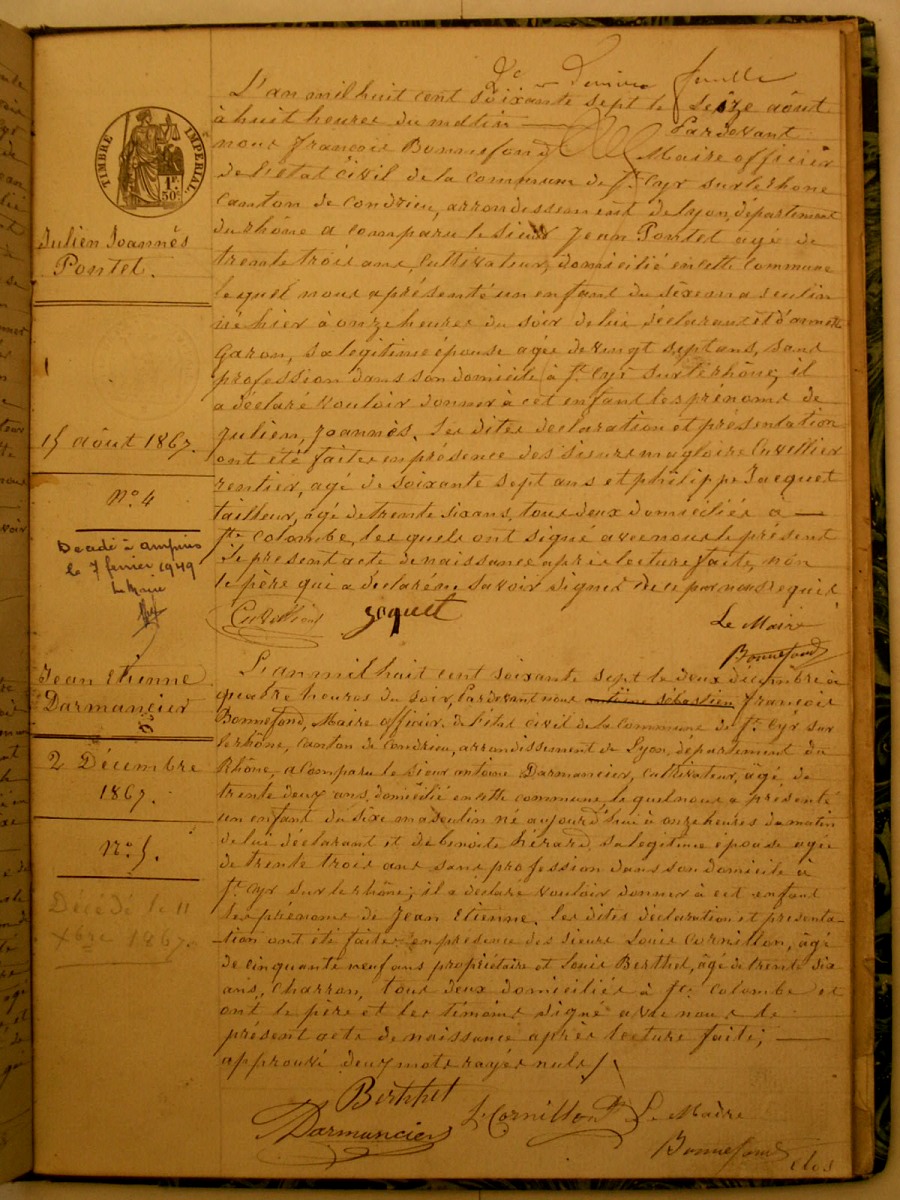 TIMBRE IMPERIAL
1 F. 50 c.
feuille
L'an mil huit cent soixante sept le seize août
à huit heures du matin — Pardevant
nous François Bonnefond Maire officier
de l'état civil de la commune de St Cyr sur le rhône
canton de Condrieu, arrondissement de Lyon, département
du rhône a comparu le sieur Jean Pontet agé de
trente trois ans, Cultivateur, domicilié en cette commune
lequel nous a présenté un enfant du sixe masculin
né hier à onze heures du soir de lui déclarant et d'annette
Garon, sa légitime épouse agée de vingt sept ans, sans
profession dans son domicile à St Cyr sur le rhône; il
a déclaré vouloir donner à cet enfant les prénoms de
Julien, Joannès. Les dites déclaration et présentation
ont été faites en présence des sieurs magloire Cuvellier
rentier, agé de soixante sept ans et philippe Jacquet
tailleur, âgé de trente six ans, tous deux domiciliés à —
Ste Colombe, les quels ont signé avec nous le présent
le présent acte de naissance après lecture faite, non
le père qui a déclaré ne savoir signer de ce par nous requis
Cuvellier Jaquet Le Maire
Bonnefond
Julien Joannès
Pontet.
15 août 1867.
No. 4
Décédé à ampuis
le 7 février 1949
Le Maire
L'an mil huit cent soixante sept le deux décembre à
quatre heures du soir, Pardevant nous antoine sébastien François
Bonnefond, Maire officier de l'état civil de la Commune de St Cyr sur
le rhône, canton de Condrieu, arrondissement de Lyon, département du
Rhône, a Comparu le sieur antoine Darmancier, Cultivateur, âgé de
trente deux ans, domicilié en cette commune, lequel nous a présenté
un enfant du sixe masculin né aujourd'hui à onze heures du matin
de lui déclarant et de benoite hérard, sa légitime épouse agée
de trente trois ans sans profession dans son domicile à
St Cyr sur le rhône; il a déclaré vouloir donner à cet enfant
les prénoms de Jean Etienne. Les dites déclaration et présenta-
tion ont été faites en présence des sieurs Louis Cornillon, âgé
de cinquante neuf ans propriétaire et Louis Berthet, âgé de trente six
ans, Charron, tous deux domiciliés à Ste Colombe et
ont le père et les témoins signé avec nous le
présent acte de naissance après lecture faite; —
approuvé deux mots rayés nuls /
Berthet
Darmancier L. Cornillon Le Maire
Bonnefond
clos
Jean Etienne
Darmancier
2 Décembre
1867.
No. 5.
Décédé le 11
Xbre 1867.